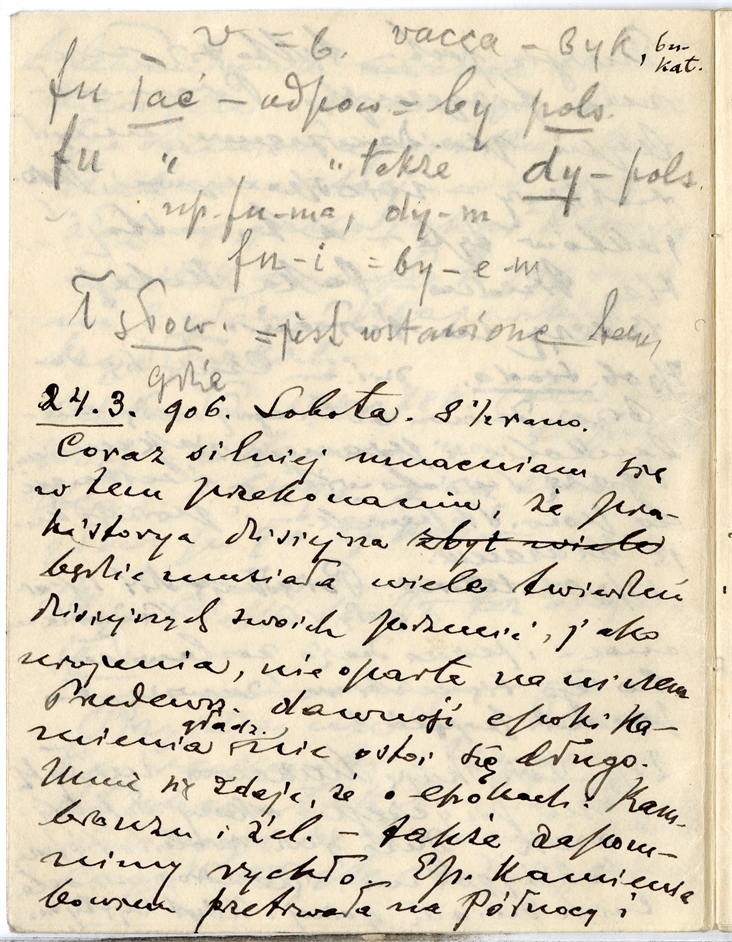 v = b. vacca – byk, bu-
kat.
fu łać – odpow = by pols.
fu " " także dy – pols.
np. fu-ma, dy-m
fu-i = by-em
ł słow. = jest wstawione
gdzie
24.3. 906. Sobota. 8½ rano.
Coraz silniej umacniam się
w tem przekonaniu, że pra-
historya dzisiejsza zbyt wiele
będzie musiała wiele twierdzeń
dzisiejszych swoich porzucić, jako
urojenia, nie oparte na niczem
Przedewsz. dawność epoki ka-
mienia gładz. nie ostoi się długo.
Mnie się zdaje, że o epokach: kam.
bronzu i żel. – także zapom-
nimy rychło. Ep. kamienia
bowiem przetrwała na Północy i